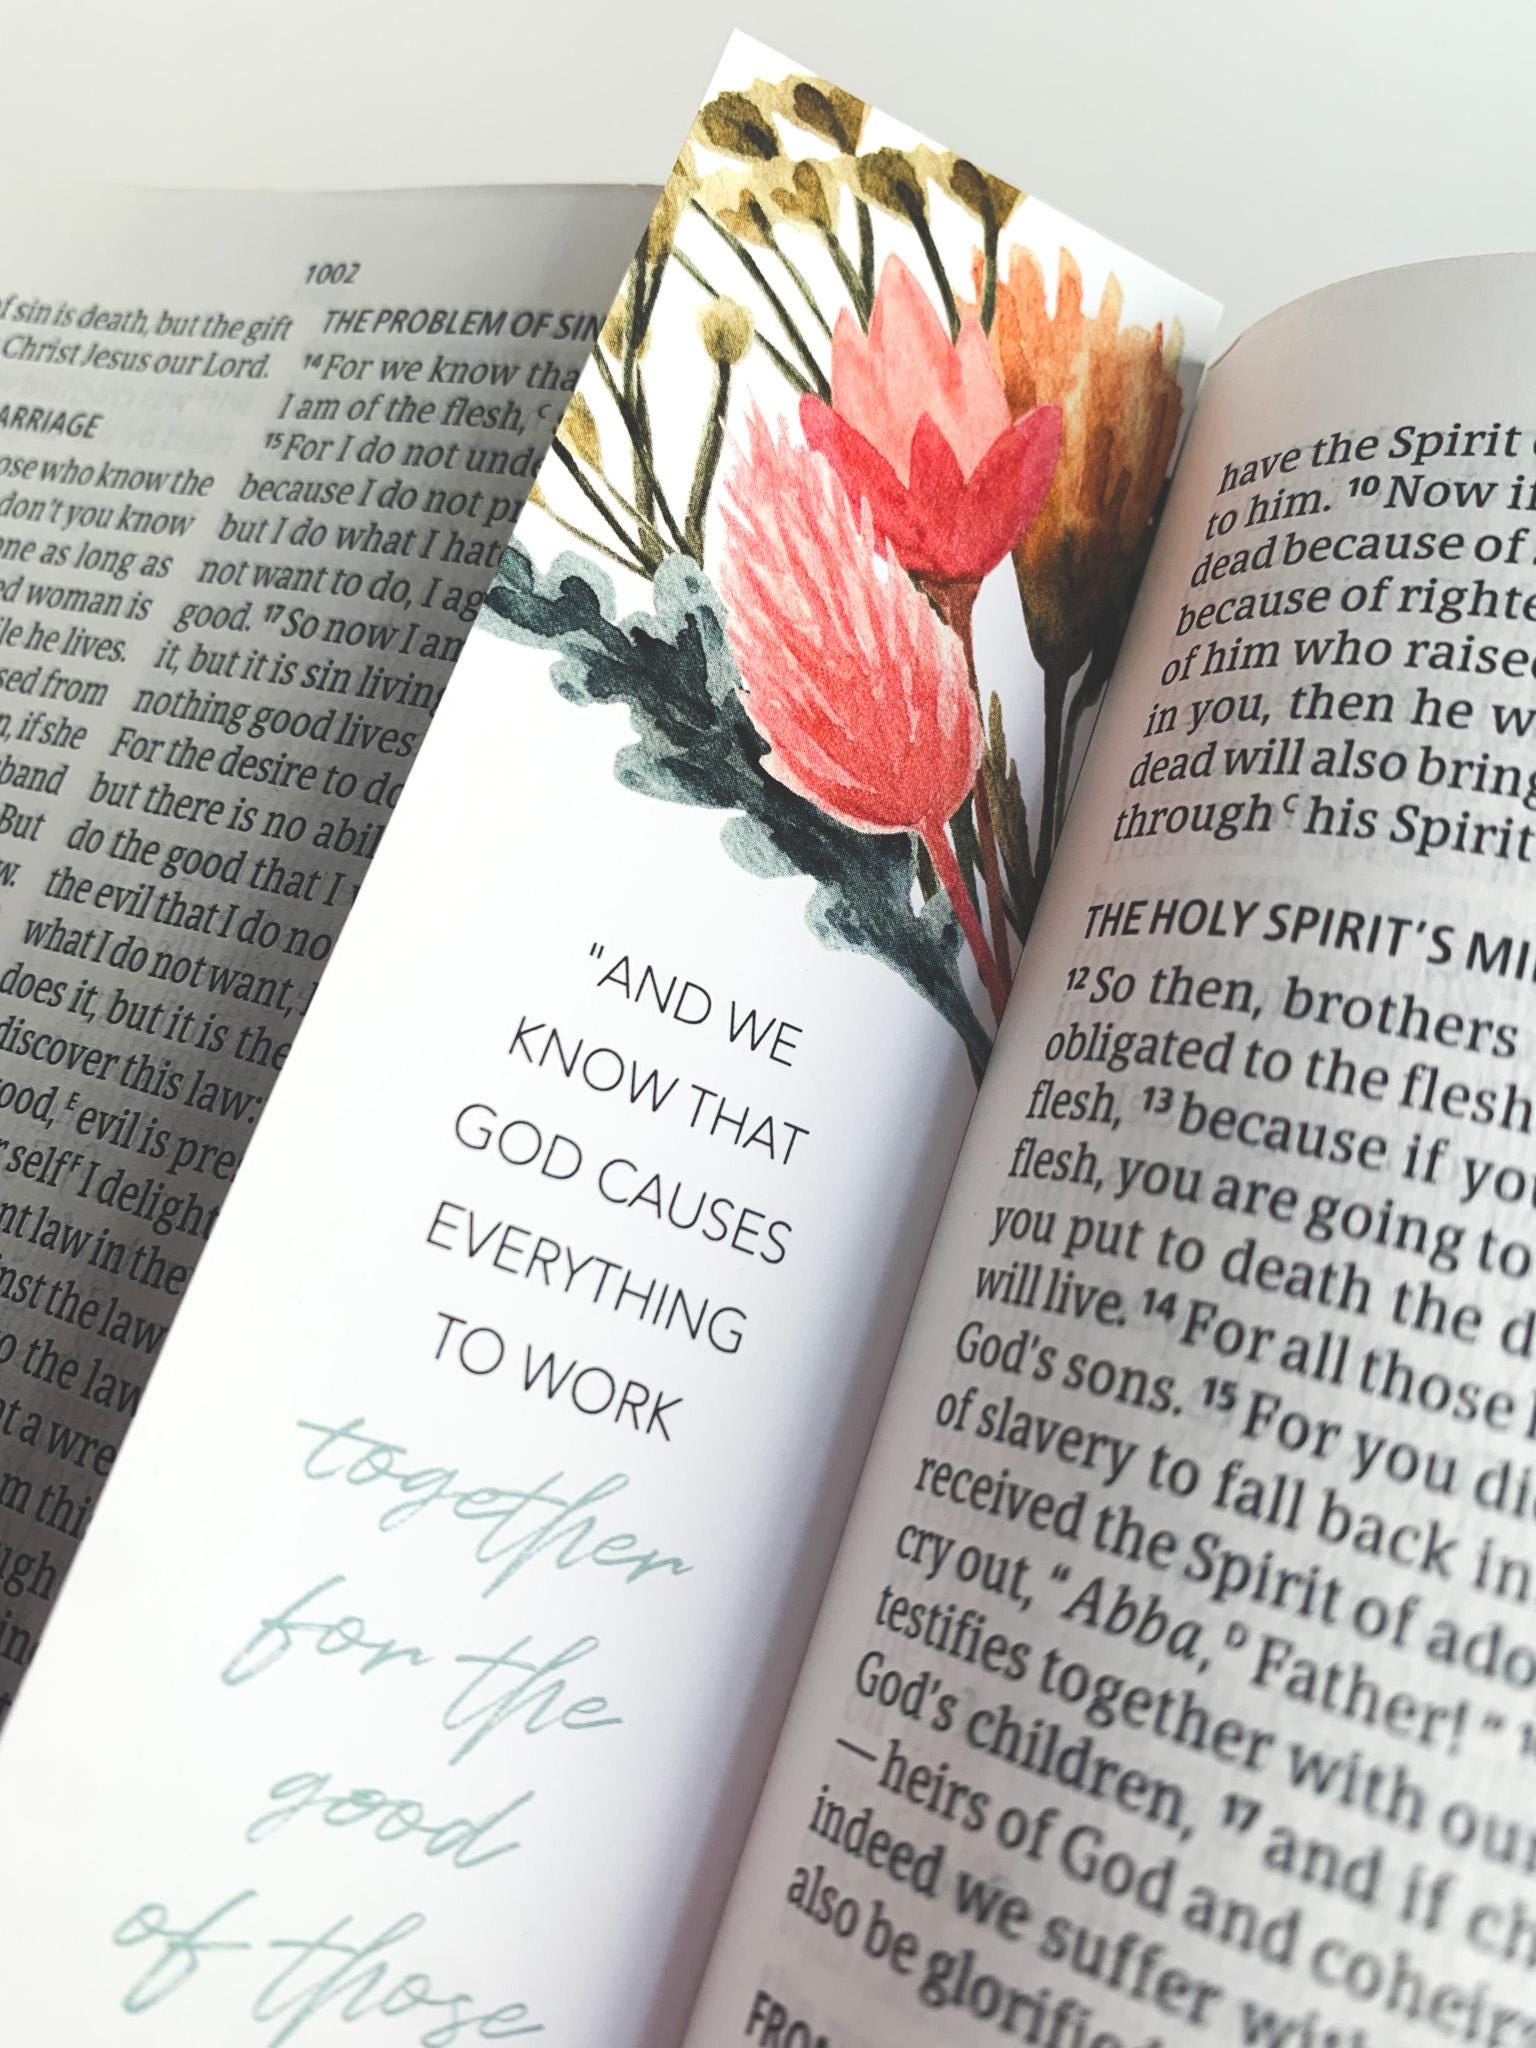 1002
of sin is death, but the gift
Christ Jesus our Lord.
ose who know the
don't you know
one as long as
ed woman is
le he lives.
sed from
n, if she
band
But
w.
THE PROBLEM OF SIN
14 For we know tha
I am of the flesh, C
15 For I do not unde
because I do not pr
but I do what I hat
not want to do, I ag
good. 17 So now I am
it, but it is sin living
nothing good lives
For the desire to do
but there is no abil
do the good that I
the evil that I do no
what I do not want,
does it, but it is the
discover this law:
good, E evil is pre
r self F I delight
nt law in the
inst the law
to the law
at a wre
m thi
"AND WE
KNOW THAT
GOD CAUSES
EVERYTHING
TO WORK
together
for the
good
of those
have the Spirit
to him. 10 Now if
dead because of
because of righte
of him who raise
in you, then he w
dead will also bring
through C his Spirit
THE HOLY SPIRIT'S MI
12 So then, brothers
obligated to the flesh
flesh, 13 because if yo
flesh, you are going to
you put to death the d
will live. 14 For all those
God's sons. 15 For you di
of slavery to fall back in
received the Spirit of ado
cry out, "Abba, D Father!"
testifies together with our
God's children, 17 and if ch
—heirs of God and coheirs
indeed we suffer with
also be glorified
FROM